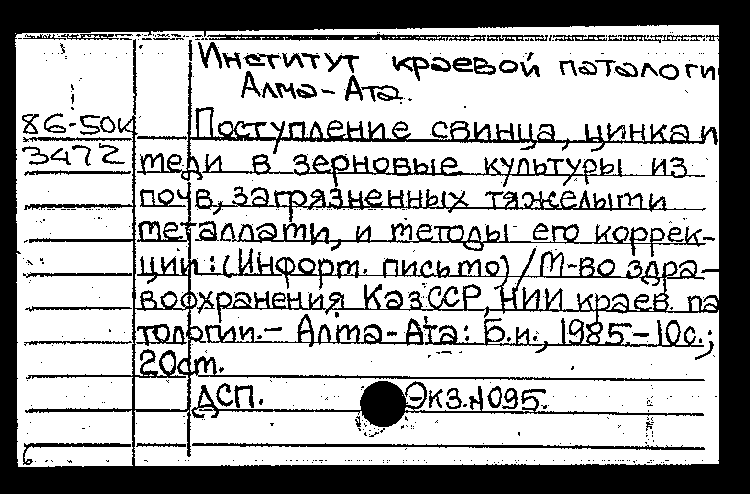 Институт краевой патологи
Алма-Ата.
86-50К
3472
Поступление свинца, цинка и
меди в зерновые культуры из
почв, загрязненных тяжелыми
металлами, и методы его коррек-
ции: (Информ. письмо) / М-во здра-
воохранения КазССР, НИИ краев. па
тологии.- Алма-Ата: Б.и., 1985.-10с.;
20см.
ДСП. Экз.N095.